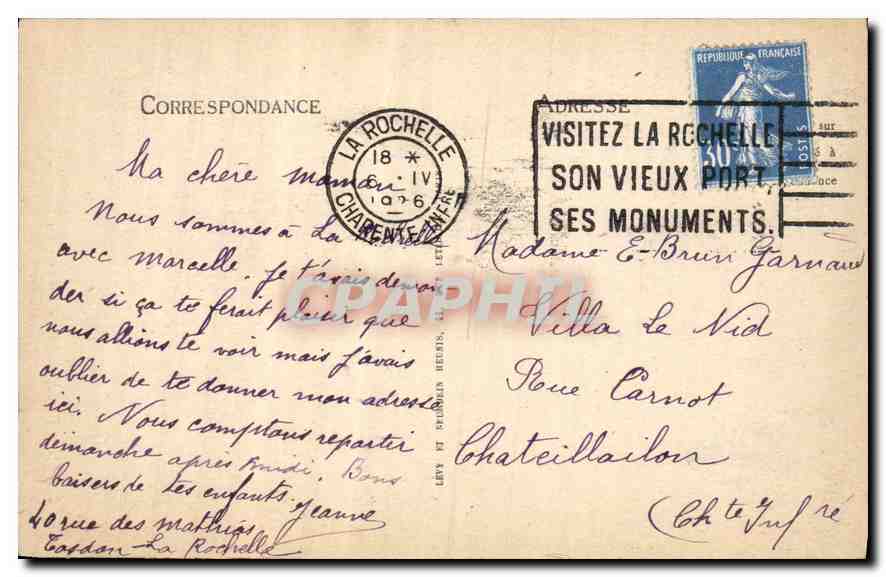 CORRESPONDANCE
Ma chère maman
Nous sommes à La Rochelle
avec Marcelle. Je t'avais deman
der si ça te ferait plaisir que
nous allions te voir mais j'avais
oublier de te donner mon adresse
ici. Nous comptons repartir
dimanche après midi. Bons
baisers de tes enfants.
Jeanne
40 rue des Mathias
Tasdon-La Rochelle
LA ROCHELLE
18 *
6 · IV
1926
CHARENTE INFRE
LÉVY ET NEURDEIN RÉUNIS,
ADRESSE
VISITEZ LA ROCHELLE
SON VIEUX PORT
SES MONUMENTS.
REPUBLIQUE FRANÇAISE
30
POSTES
sur
à
Madame E-Brun Garnaud
Villa Le Nid
Rue Carnot
Chateillailon
(Chte Infré
CPAPHIL